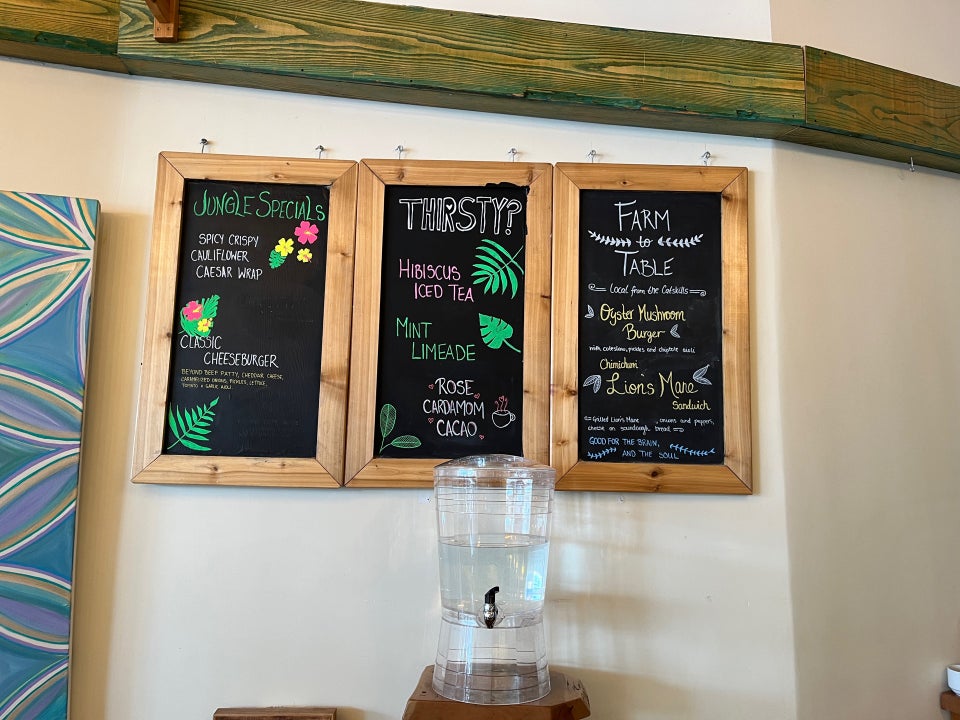 JUNGLE SPECIALS
SPICY CRISPY
CAULIFLOWER
CAESAR WRAP
CLASSIC
CHEESEBURGER
BEYOND BEEF PATTY, CHEDDAR CHEESE,
CARAMELIZED ONIONS, PICKLES, LETTUCE,
TOMATO + GARLIC AIOLI.
THIRSTY?
HIBISCUS
ICED TEA
MINT
LIMEADE
ROSE
CARDAMOM
CACAO
FARM
to
TABLE
Local from the Catskills
Oyster Mushroom
Burger
with coleslaw, pickles and chipotle aioli
Chimichurri
Lion's Mane
Sandwich
Grilled Lion's Mane , onions and peppers,
cheese on sourdough bread
GOOD FOR THE BRAIN,
AND THE SOUL